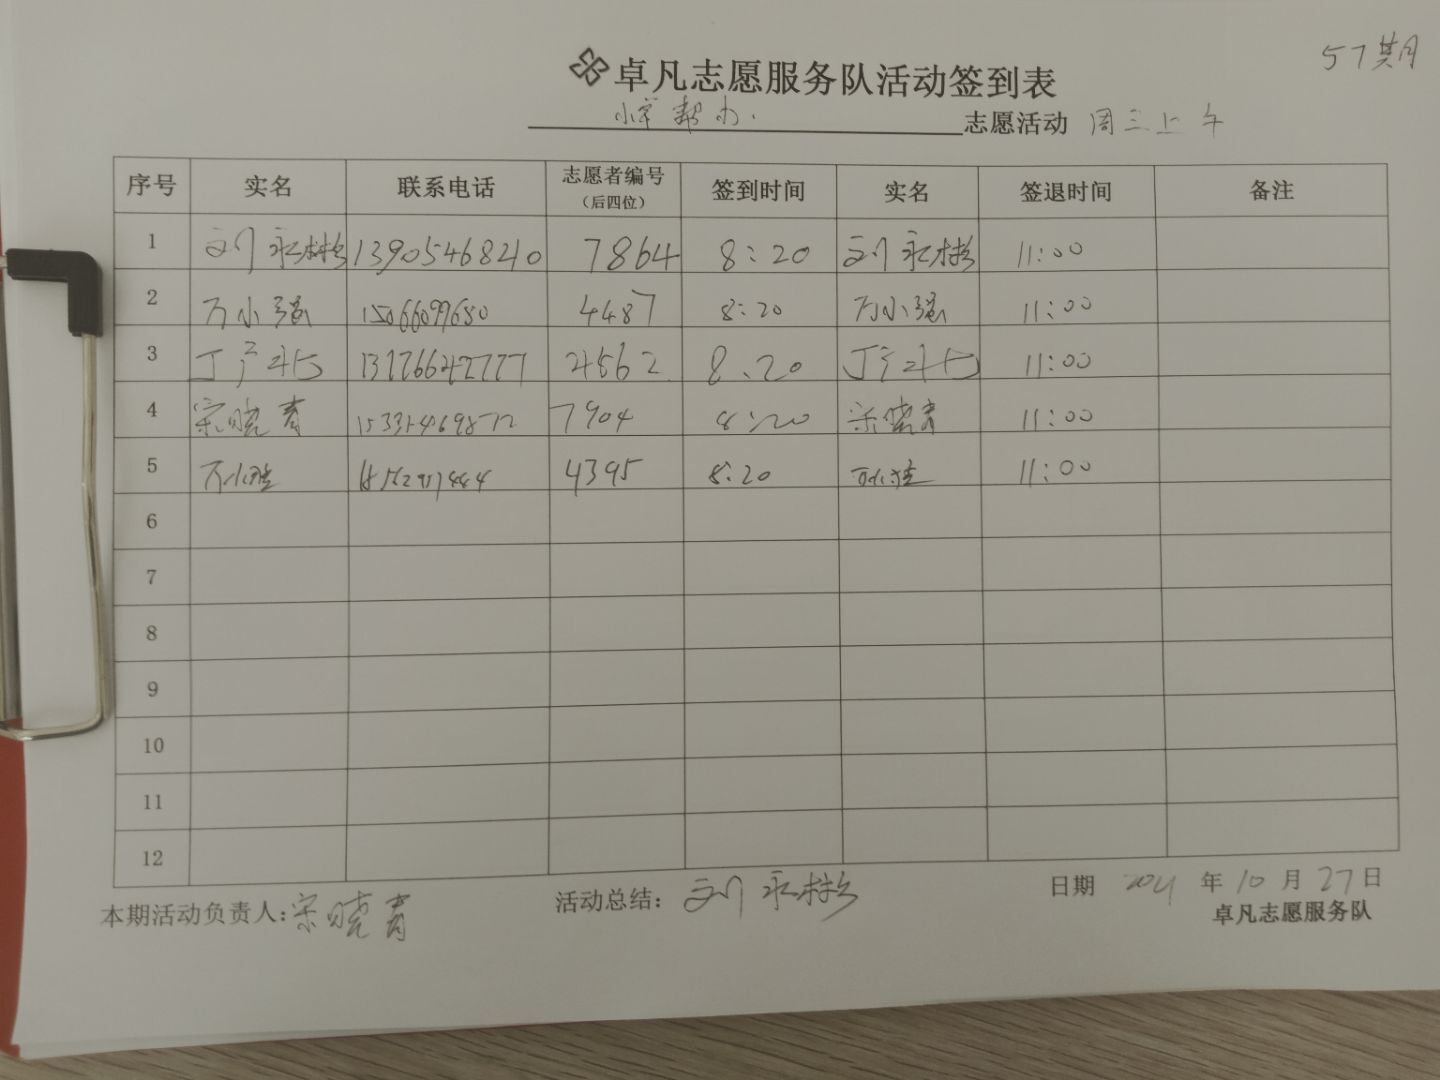 57期
卓凡志愿服务队活动签到表
帮办 志愿活动 周三上午
序号 实名 联系电话 志愿者编号 (后四位) 签到时间 实名 签退时间 备注
1 刘永彬 13905468210 7864 8:20 刘永彬 11:00
2 万小强 15066099680 4487 8:20 万小强 11:00
3 4562 8:20 11:00
4 宋晓青 7904 8:20 宋晓青 11:00
5 4395 8:20 11:00
6
7
8
9
10
11
12
本期活动负责人:宋晓青 活动总结: 刘永彬 日期 2021 年 10 月 27 日
卓凡志愿服务队